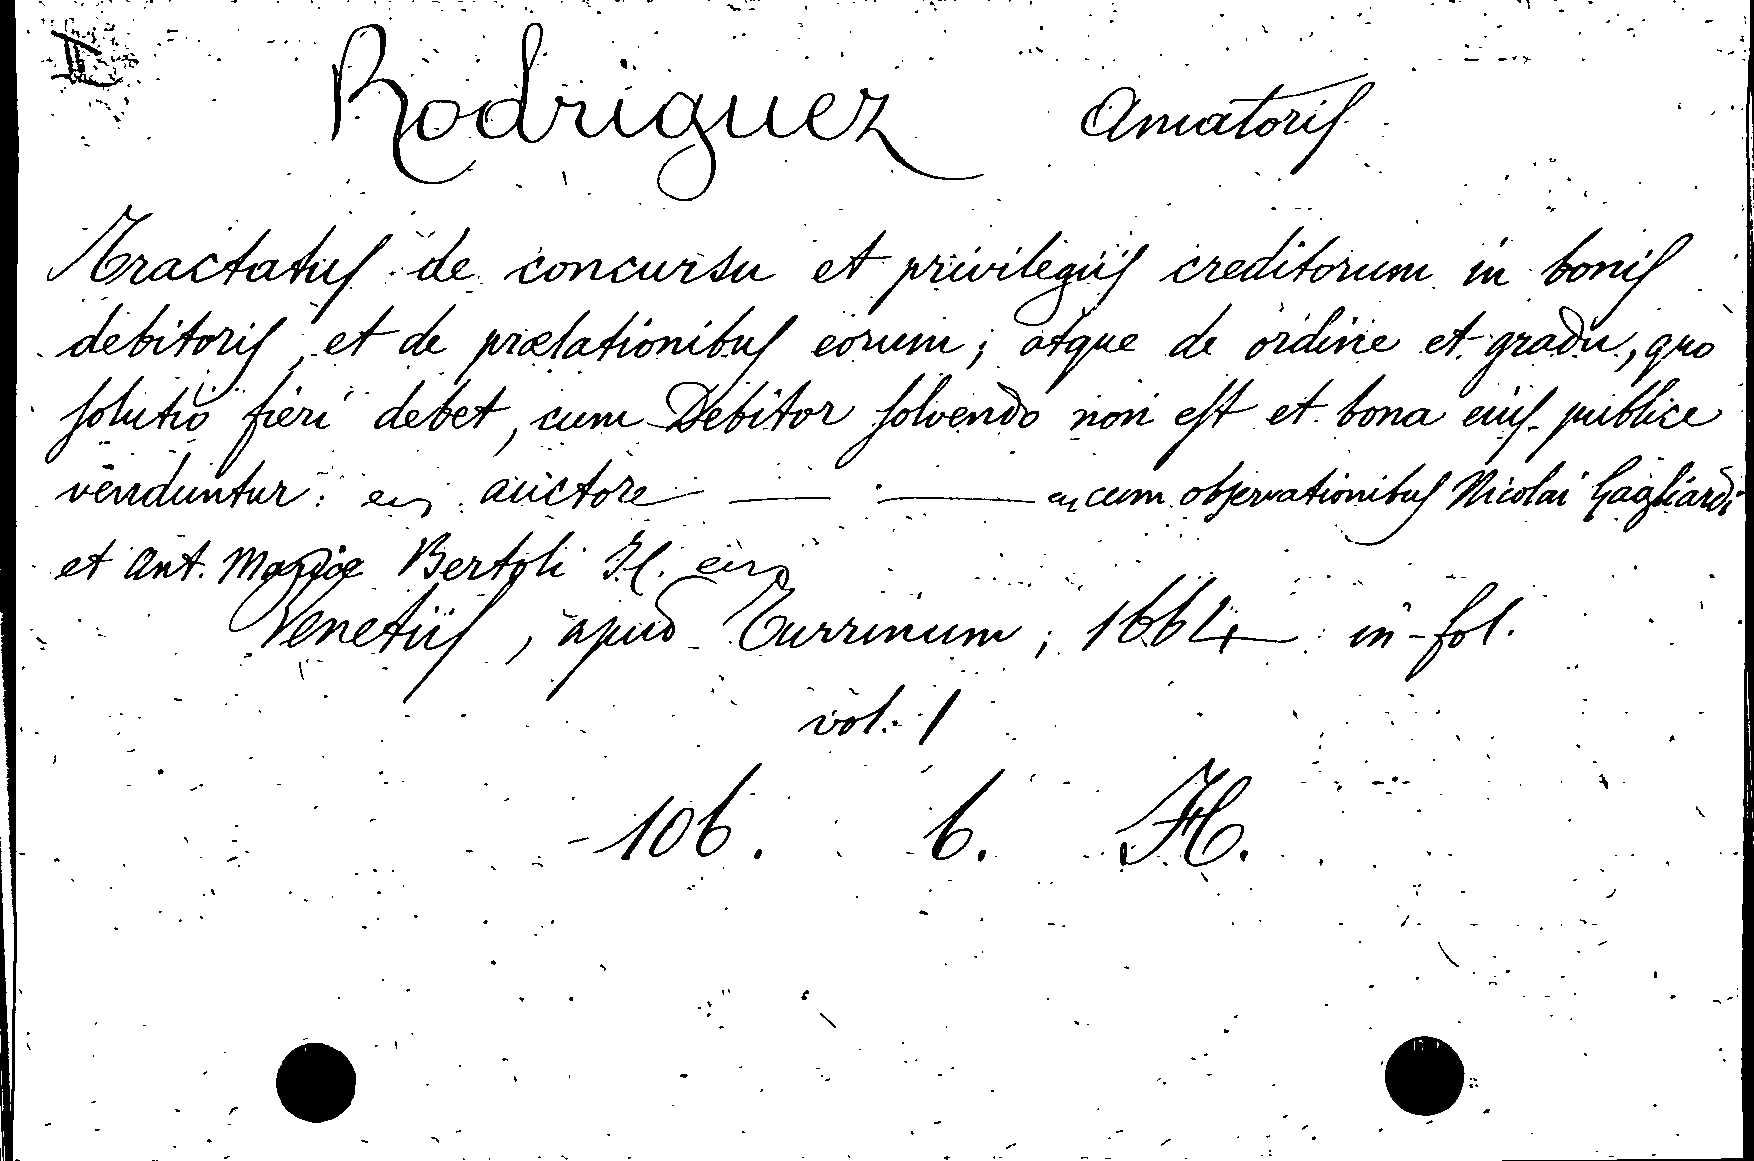 Rodriguez Amatoris
Tractatus de concursu et privilegiis creditorum in bonis
debitoris, et de prælationibus eorum; atque de ordine et gradu, quo
solutio fieri debet, cum Debitor solvendo non est et bona eius publice
venduntur: auctore — — cum observationibus Nicolai Gagliardi
et Ant. Mariæ Bertoli
Venetiis, apud Turrinum, 1664 in-fol.
vol. 1
106. 6. H.